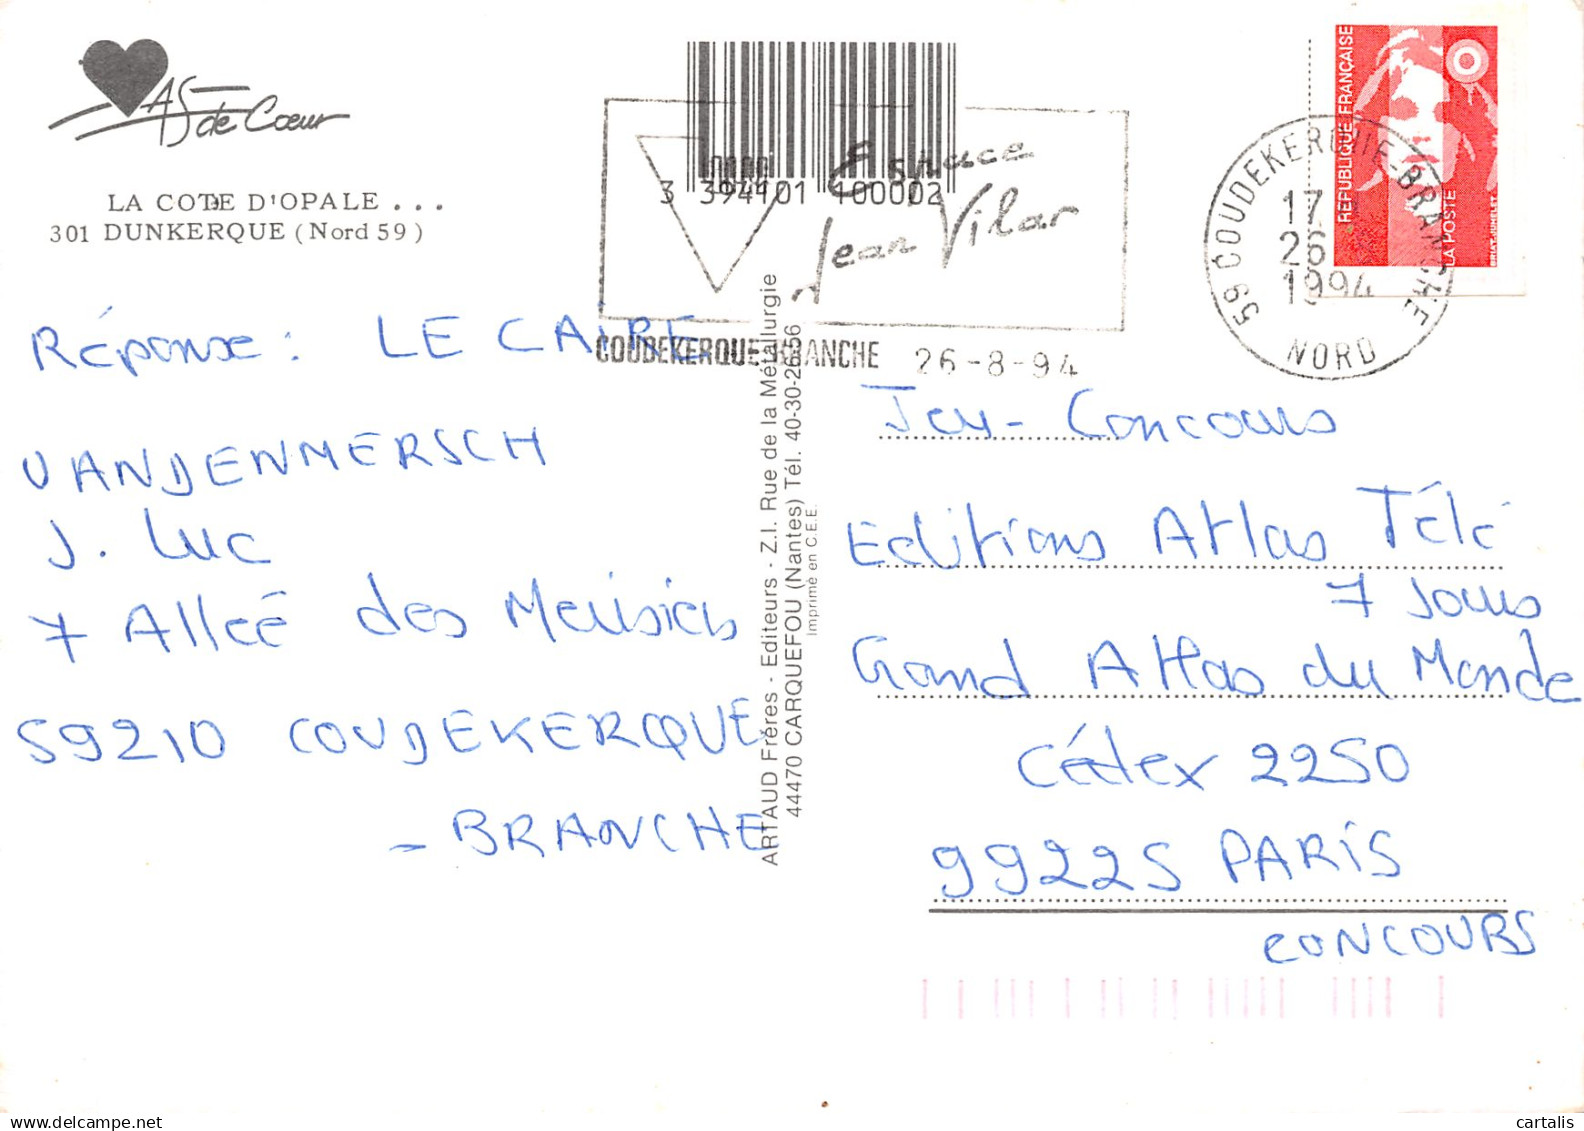 AS de Cœur
LA COTE D'OPALE . . .
301 DUNKERQUE (Nord 59)
3 394101 100002
Espace
Jean Vilar
COUDEKERQUE BRANCHE 26-8-94
RÉPUBLIQUE FRANÇAISE
LA POSTE
59 COUDEKERQUE-BRANCHE
17
26
1994
NORD
Réponse : LE CAIRE
VANDENMERSCH
J. Luc
7 Alleé des Merisiers
59210 COUDEKERQUE
- BRANCHE
ARTAUD Fréres - Editeurs - Z.I. Rue de la Métallurgie
44470 CARQUEFOU (Nantes) Tél. 40-30-26-56
Imprimé en C.E.E.
Jeu - Concours
Editions Atlas Télé
7 Jours
Grand Atlas du Monde
Cédex 2250
99225 PARIS
CONCOURS
cartalis